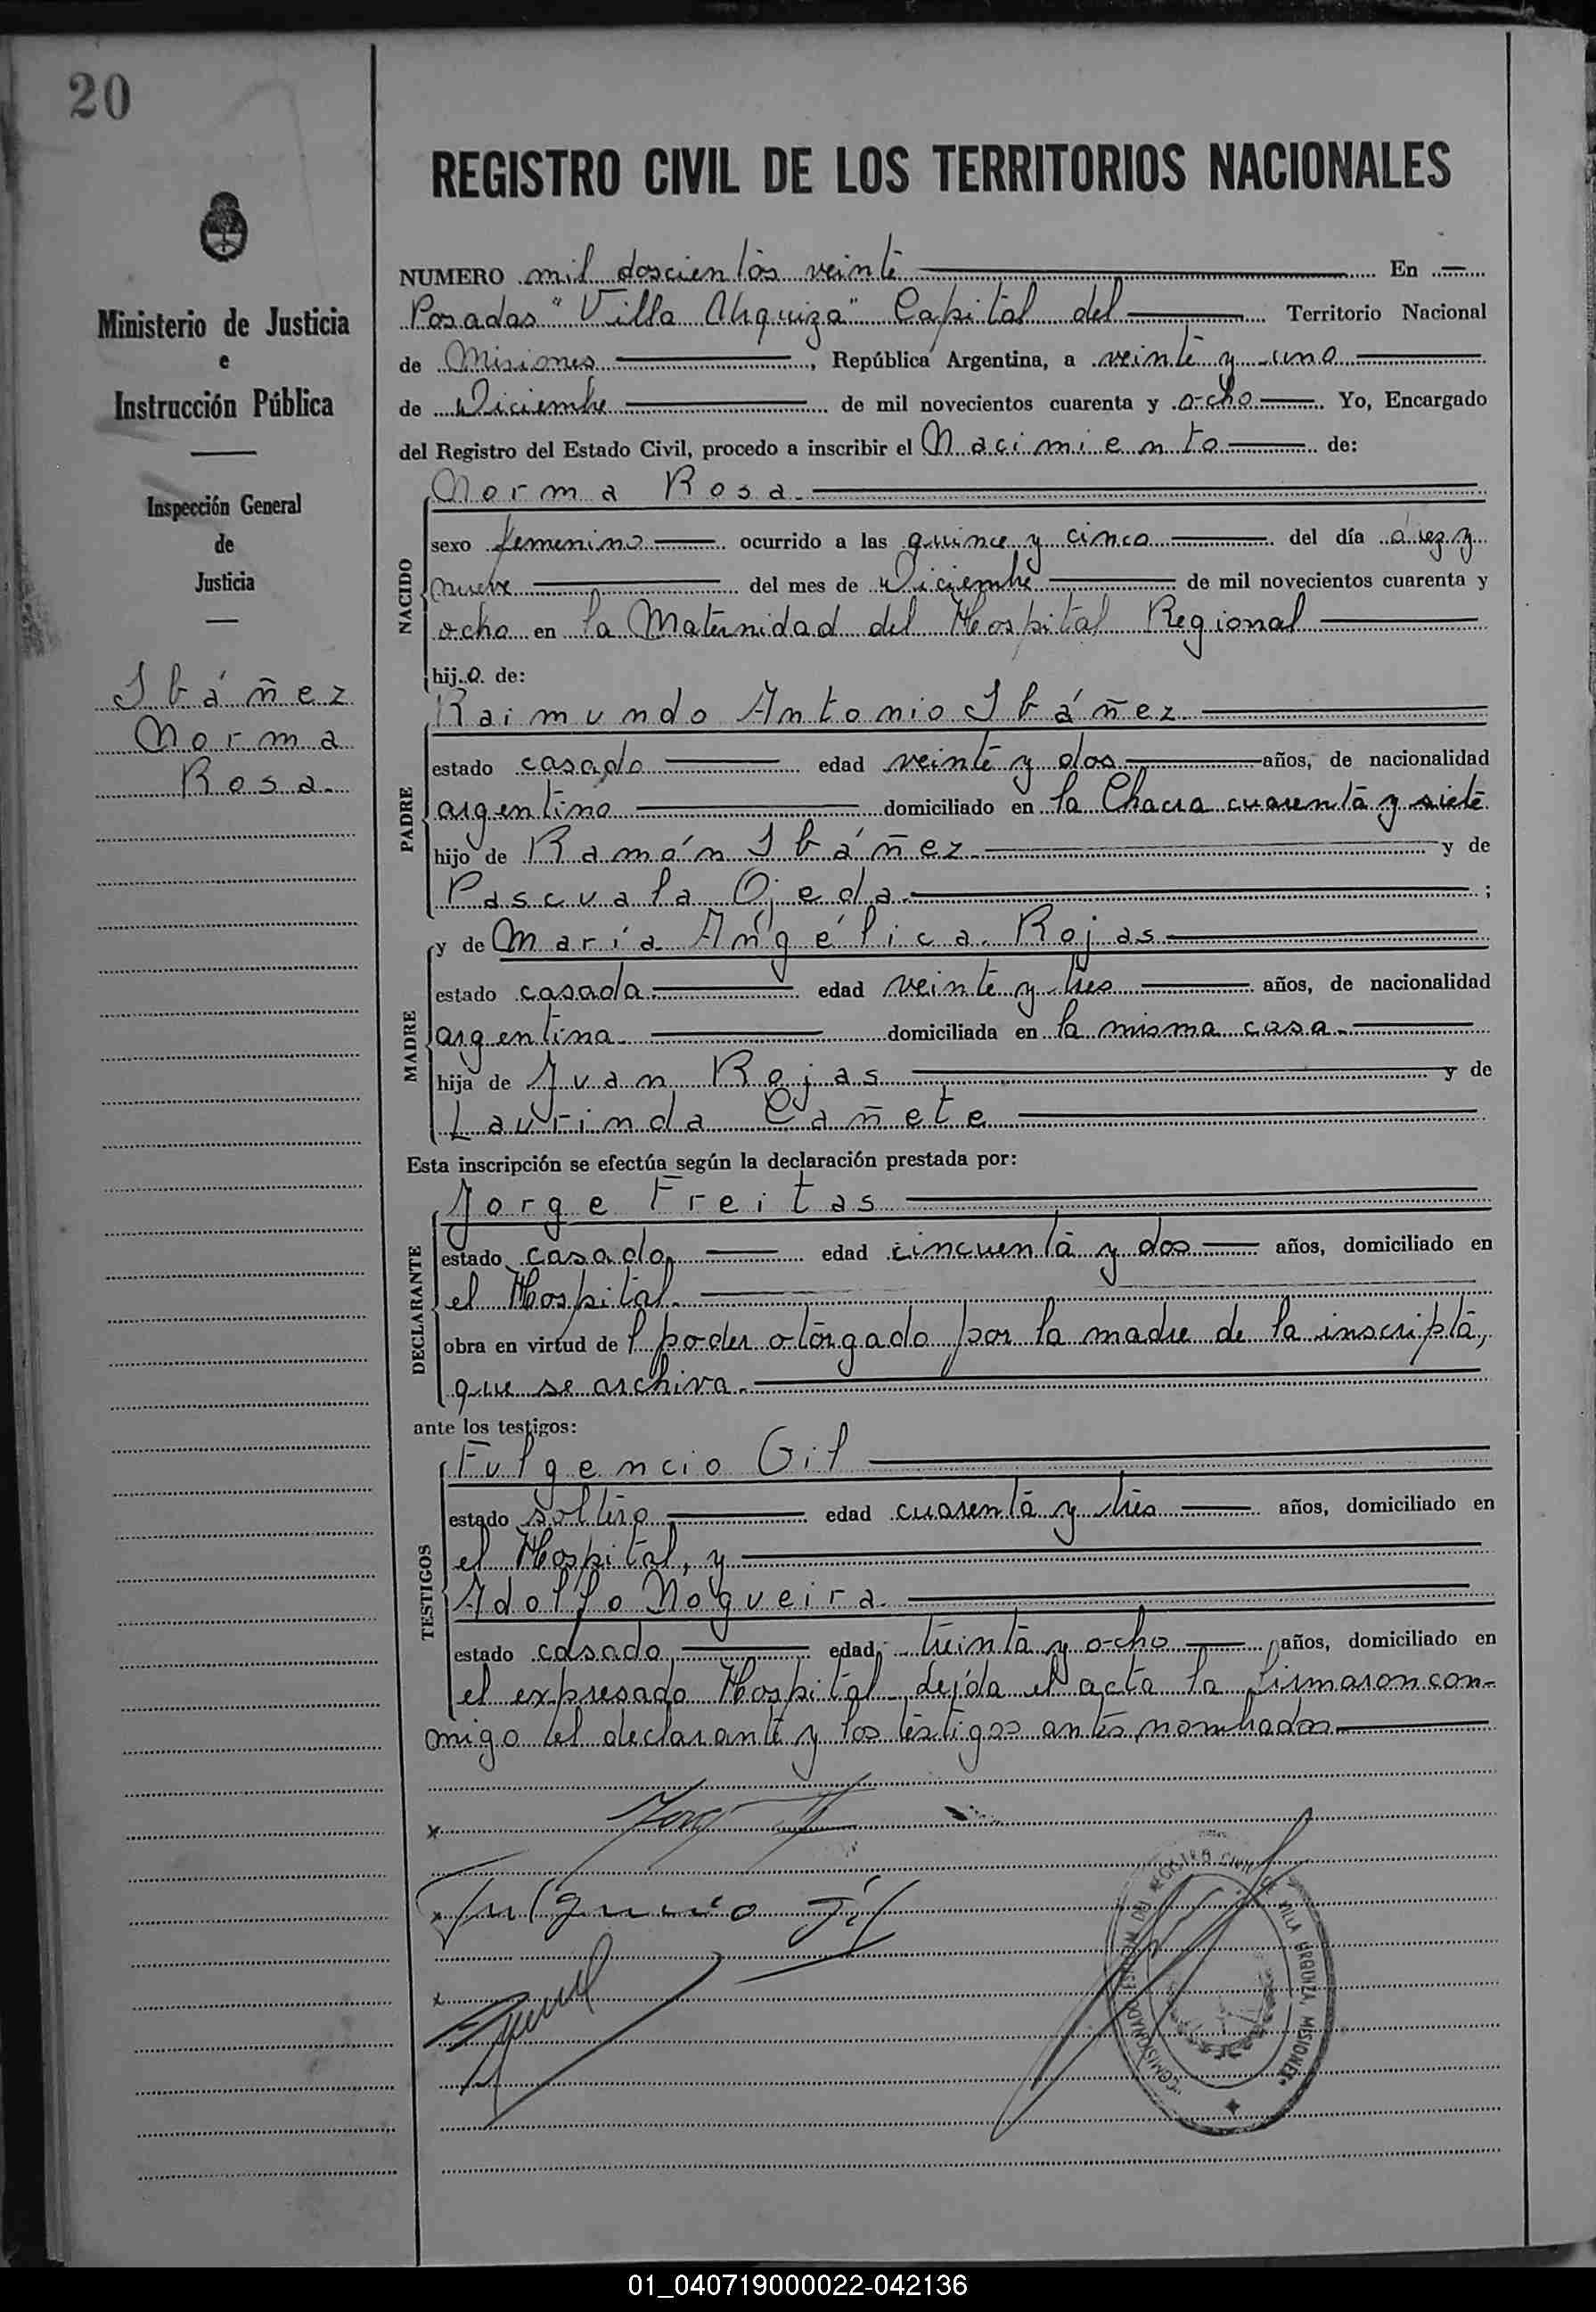 20
REGISTRO CIVIL DE LOS TERRITORIOS NACIONALES
Ministerio de Justicia
e
Instrucción Pública
Inspección General
de
Justicia
Ibáñez
Norma
Rosa.
NUMERO mil doscientos veinte En
Posadas "Villa Urquiza" Capital del Territorio Nacional
de Misiones, República Argentina, a veinte y uno
de Diciembre de mil novecientos cuarenta y ocho Yo, Encargado
del Registro del Estado Civil, procedo a inscribir el Nacimiento de:
Norma Rosa.
NACIDO
sexo femenino ocurrido a las quince y cinco del día diez y
nueve del mes de Diciembre de mil novecientos cuarenta y
ocho en la Maternidad del Hospital Regional
hija de:
Raimundo Antonio Ibáñez.
PADRE
estado casado edad veinte y dos años, de nacionalidad
argentino domiciliado en la Chacra cuarenta y siete
hijo de Ramón Ibáñez. y de
Pascuala Ojeda. ;
MADRE
y de María Angélica Rojas
estado casada. edad veinte y tres años, de nacionalidad
argentina. domiciliada en la misma casa.
hija de Juan Rojas y de
Laurinda Cañete
Esta inscripción se efectúa según la declaración prestada por:
DECLARANTE
Jorge Freitas
estado casado, edad cincuenta y dos años, domiciliado en
el Hospital.
obra en virtud del poder otorgado por la madre de la inscripta,
que se archiva.
ante los testigos:
TESTIGOS
Fulgencio Gil
estado soltero edad cuarenta y tres años, domiciliado en
el Hospital, y
Adolfo Nogueira.
estado casado, edad treinta y ocho años, domiciliado en
el expresado Hospital, leída el acta la firmaron con-
migo el declarante y los testigos antes nombrados
x Jorge
x Fulgencio Gil
x
REGISTRO CIVIL DE VILLA URQUIZA, MISIONES
01_040719000022-042136